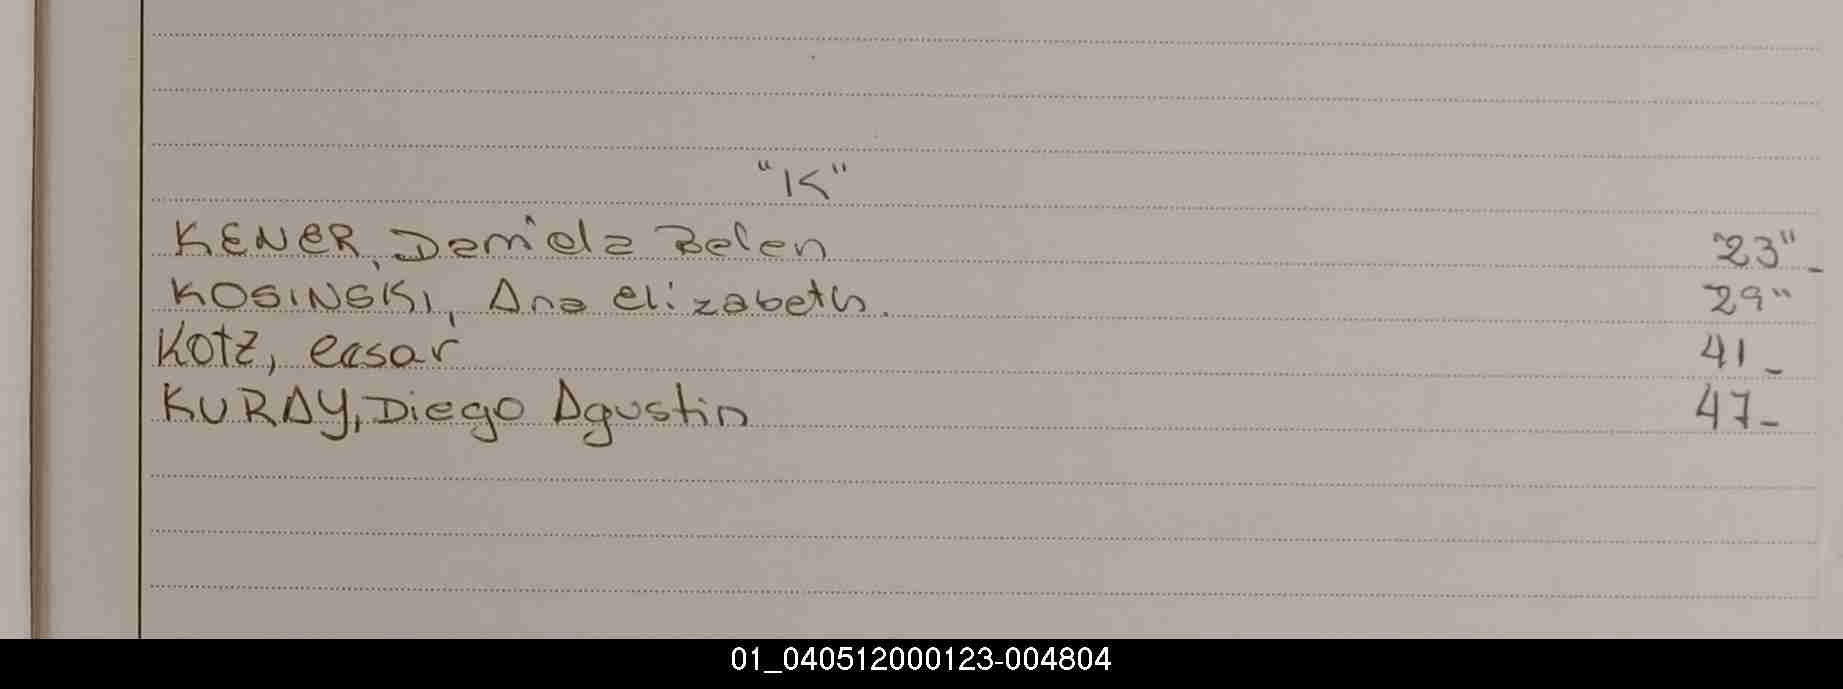 "K"
KENER, Daniela Belen 23"-
KOSINSKI, Ana Elizabeth. 29"
Kotz, Cesar 41-
KURAY, Diego Agustin 47-
01_040512000123-004804